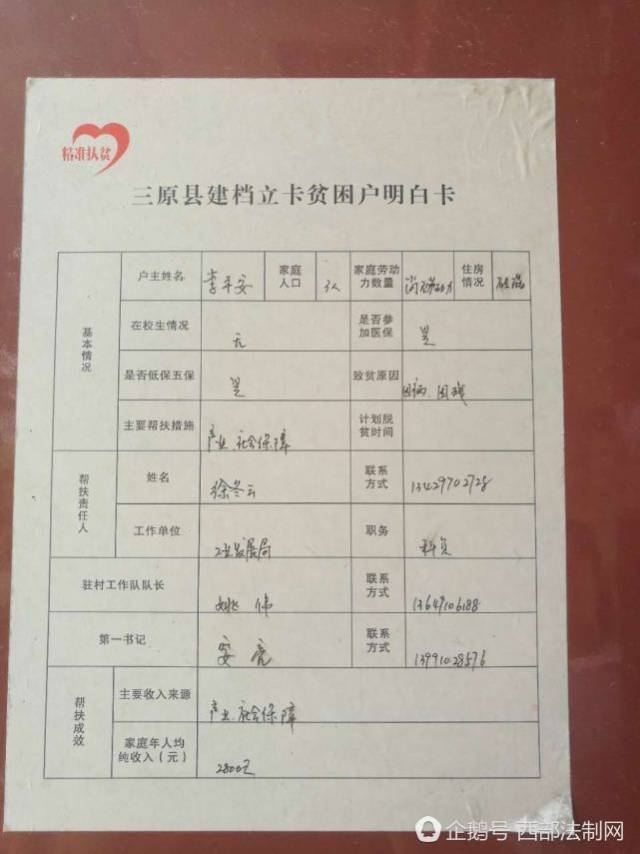 精准扶贫
三原县建档立卡贫困户明白卡
基本情况
户主姓名 李平安 家庭人口 3人 家庭劳动力数量 住房情况
在校生情况 无 是否参加医保 是
是否低保五保 是 致贫原因 因病、因残
主要帮扶措施 产业、社会保障 计划脱贫时间
帮扶责任人
姓名 徐冬云 联系方式 13429702728
工作单位 工业发展局 职务 科员
驻村工作队队长 姚伟 联系方式 13649106188
第一书记 安亮 联系方式 13991028576
帮扶成效
主要收入来源 产业、社会保障
家庭年人均纯收入（元） 2800元
企鹅号 西部法制网